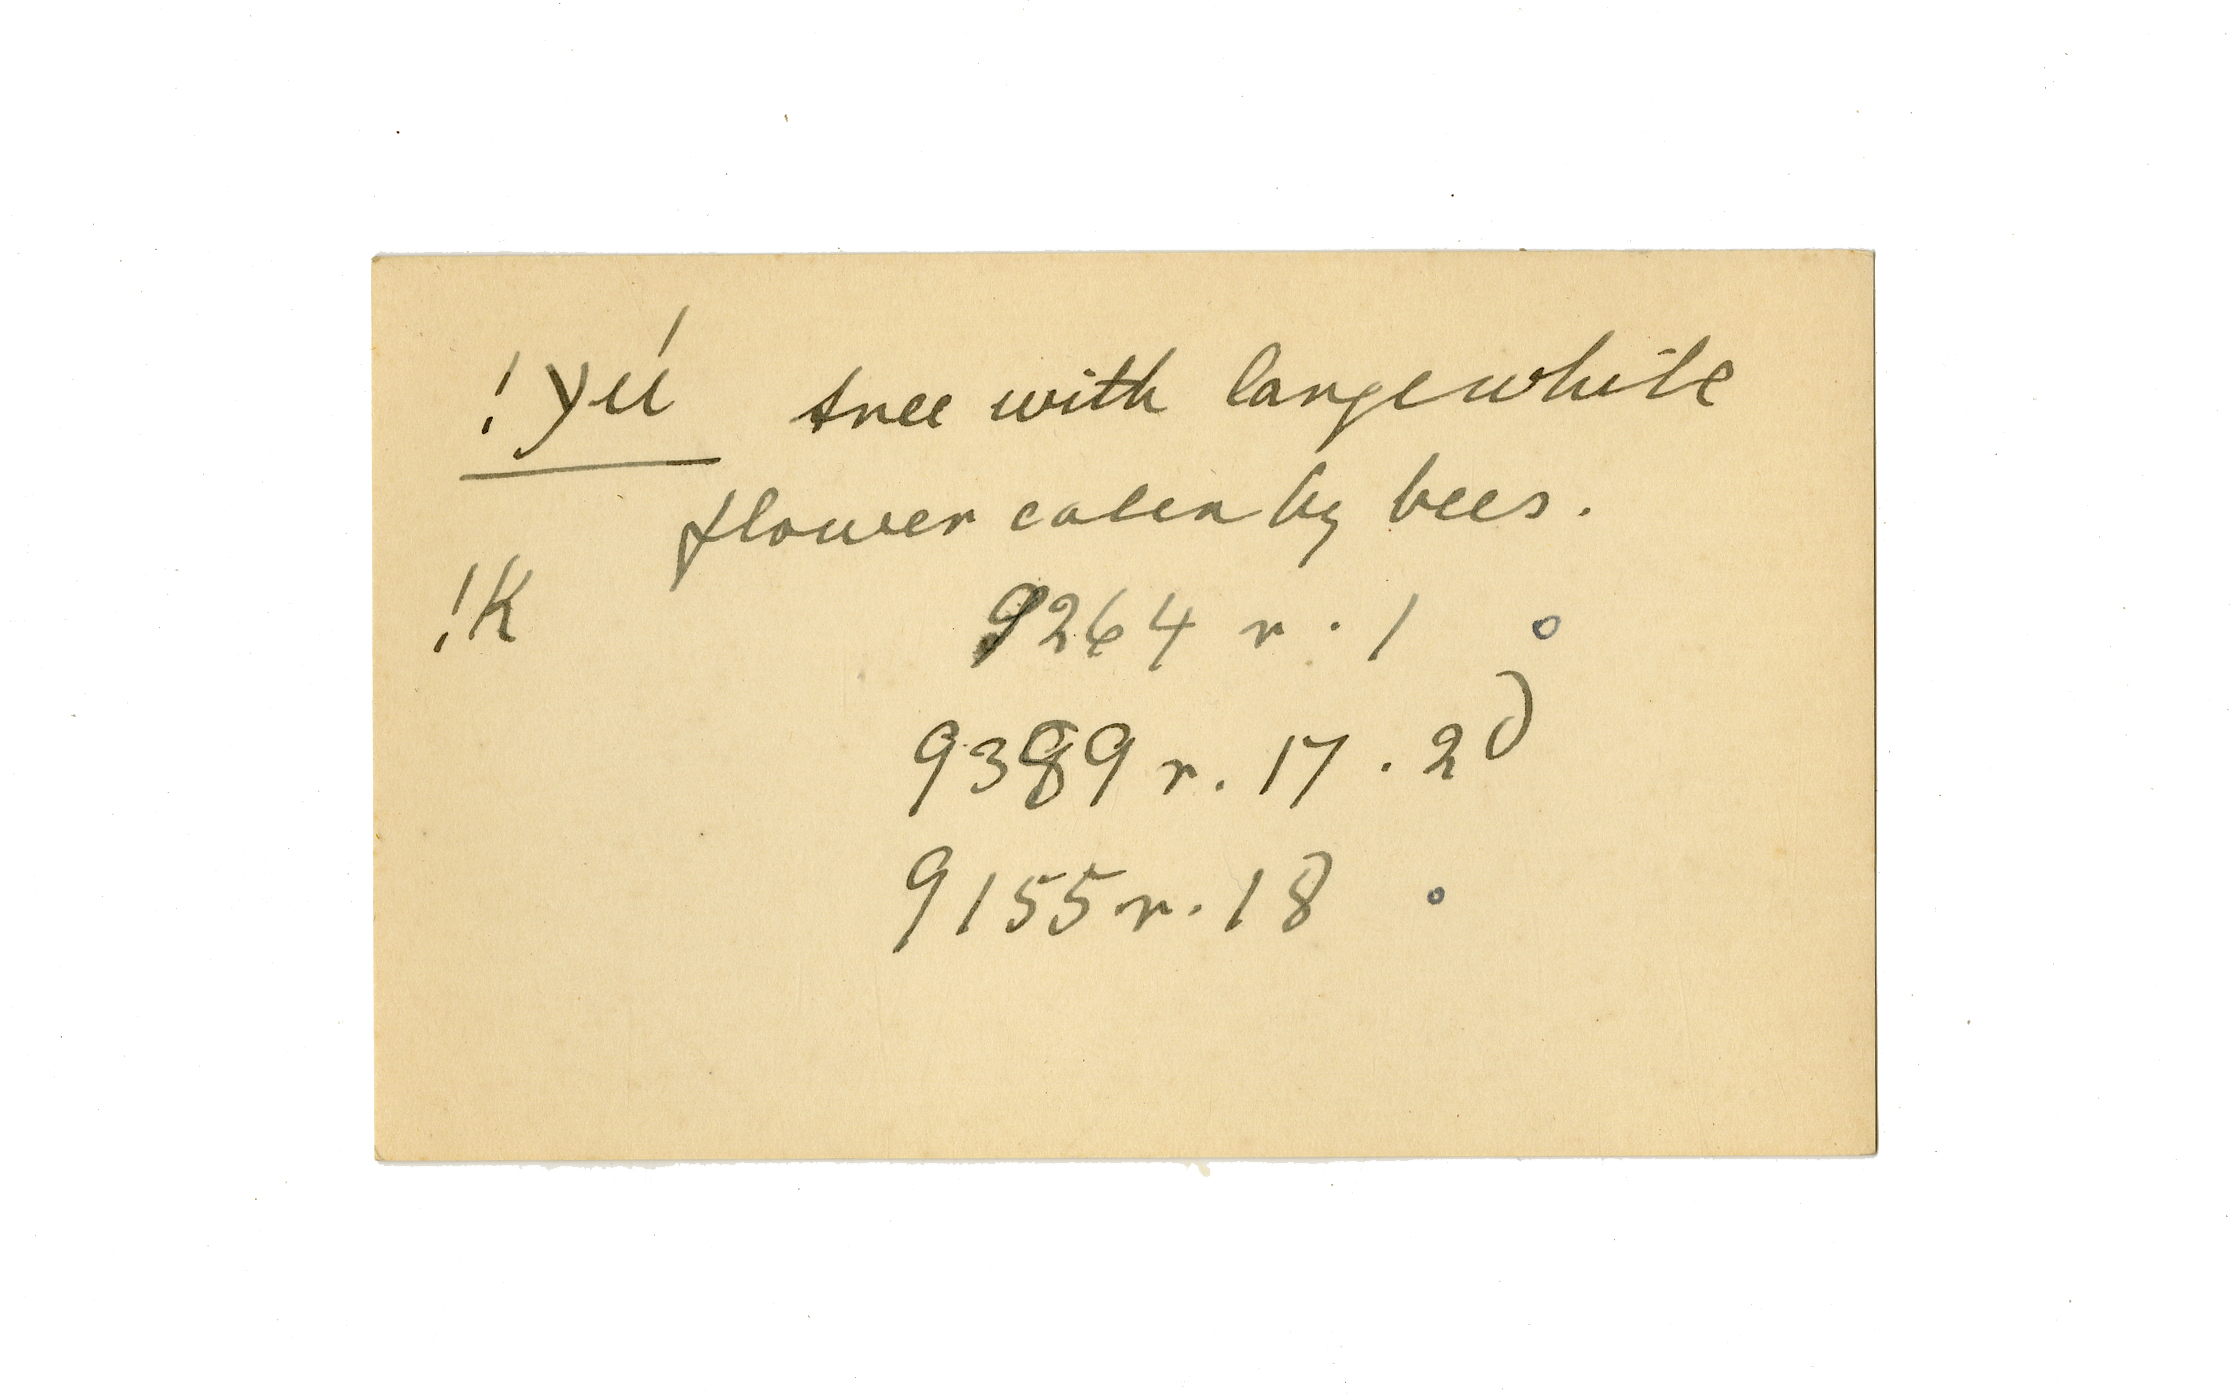 !yú tree with large white
flower eaten by bees.
!K 9264 r. 1
9389 r. 17. 2
9155 r. 18